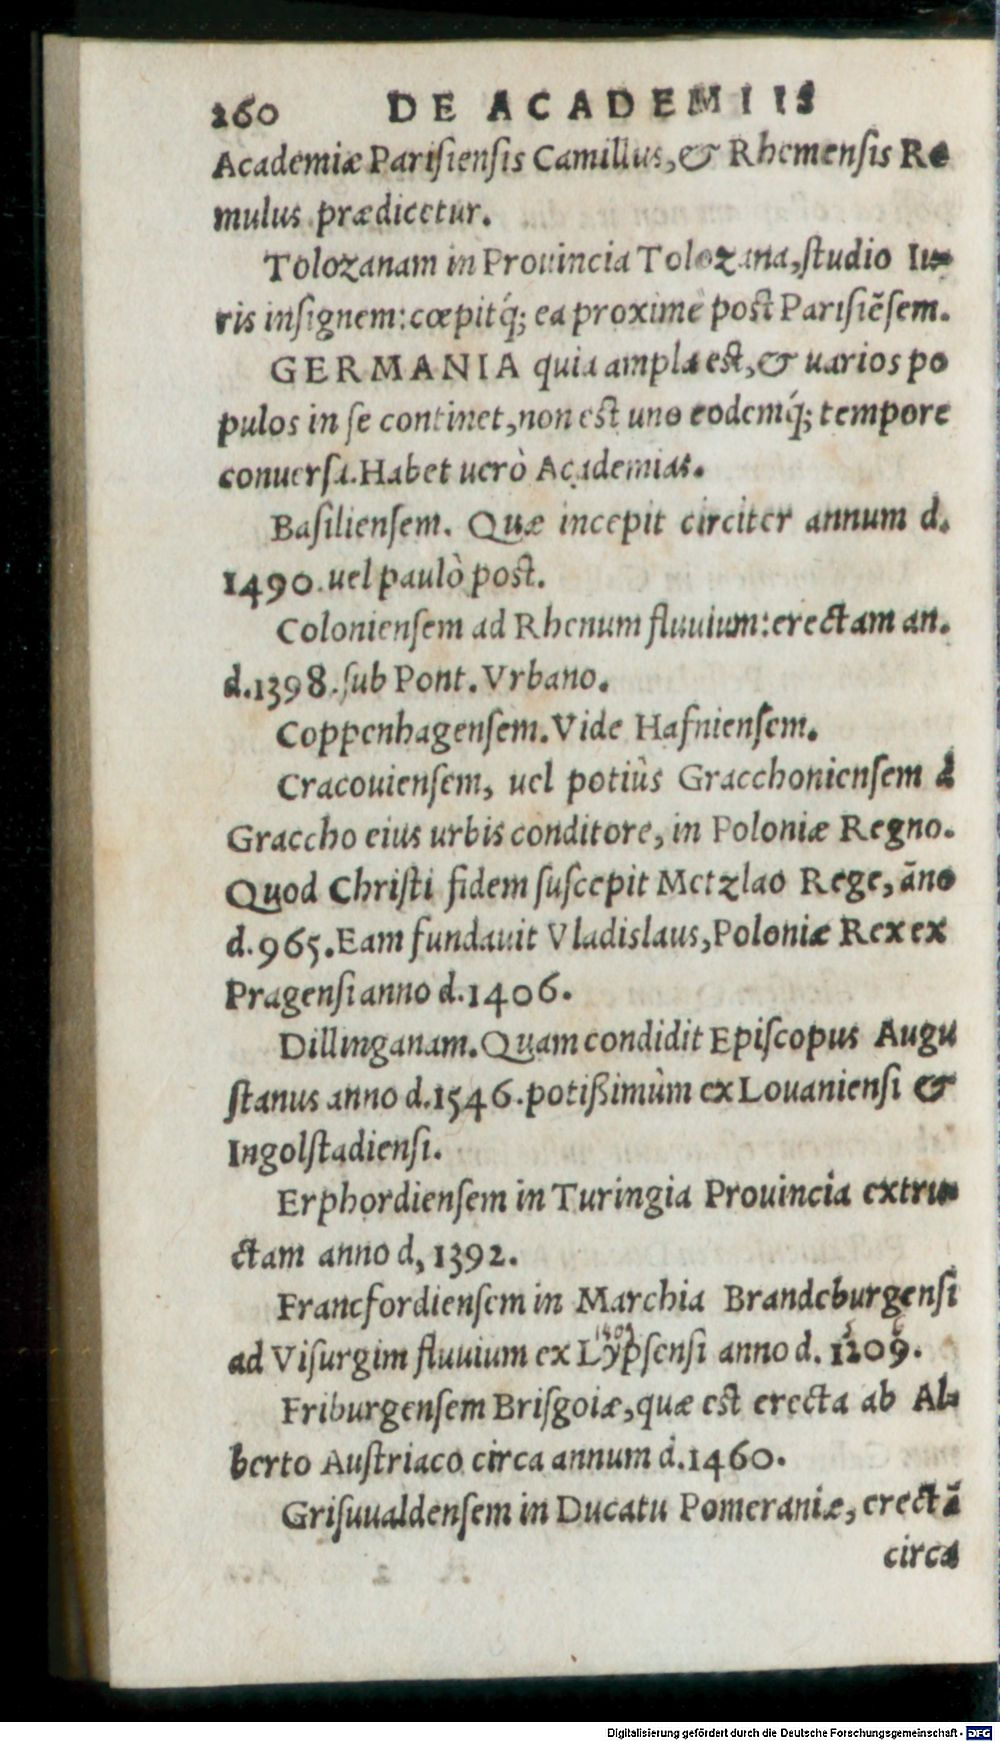 260 DE ACADEMIIS
Academiæ Parisiensis Camillus, & Rhemensis Re
mulus prædicetur.
Tolozanam in Prouincia Tolozana, studio Iu-
ris insignem: cœpitq́; ea proximè post Parisiẽsem.
GERMANIA quia ampla est, & uarios po
pulos in se continet, non est uno eodemq́; tempore
conuersa. Habet uerò Academias.
Basiliensem. Quæ incepit circiter annum d.
1490. uel paulò post.
Coloniensem ad Rhenum fluuium: erectam an.
d. 1398. sub Pont. Vrbano.
Coppenhagensem. Vide Hafniensem.
Cracouiensem, uel potiùs Gracchoniensem à
Graccho eius urbis conditore, in Poloniæ Regno.
Quod Christi fidem suscepit Metzlao Rege, ãno
d. 965. Eam fundauit Vladislaus, Poloniæ Rex ex
Pragensi anno d. 1406.
Dillinganam. Quam condidit Episcopus Augu
stanus anno d. 1546. potißimùm ex Louaniensi &
Ingolstadiensi.
Erphordiensem in Turingia Prouincia extru-
ctam anno d, 1392.
Francfordiensem in Marchia Brandeburgensi
ad Visurgim fluuium ex Lypsensi anno d. 1209.
Friburgensem Brisgoiæ, quæ est erecta ab Al-
berto Austriaco circa annum d. 1460.
Grisuualdensem in Ducatu Pomeraniæ, erectã
circa
Digitalisierung gefördert durch die Deutsche Forschungsgemeinschaft - DFG